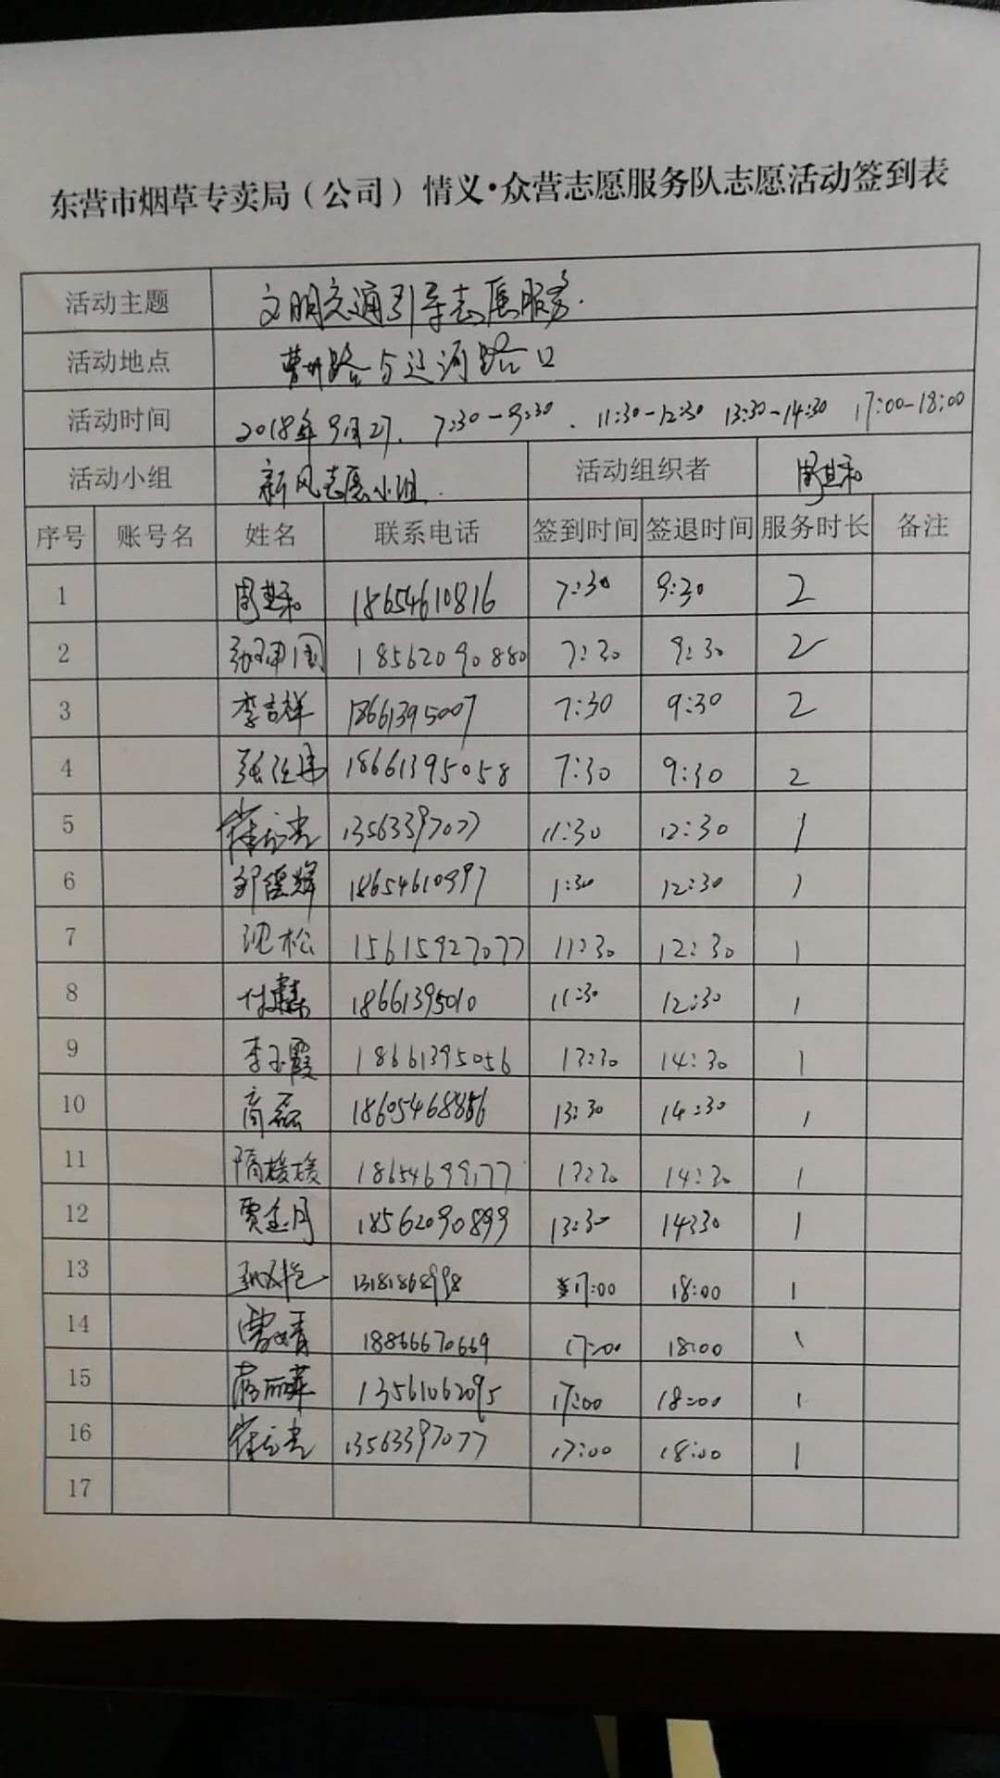 东营市烟草专卖局（公司）情义·众营志愿服务队志愿活动签到表
活动主题 文明交通引导志愿服务.
活动地点 曹州路与辽河路口
活动时间 2018年9月27. 7:30-9:30 . 11:30-12:30 13:30-14:30 17:00-18:00
活动小组 新风志愿小组. 活动组织者
序号 账号名 姓名 联系电话 签到时间 签退时间 服务时长 备注
1 18654610816 7:30 9:30 2
2 18562090880 7:30 9:30 2
3 李吉祥 18661395007 7:30 9:30 2
4 18661395058 7:30 9:30 2
5 13563397077 11:30 12:30 1
6 18654610997 1:30 12:30 1
7 沈松 15615927077 11:30 12:30 1
8 18661395010 11:30 12:30 1
9 李玉霞 18661395056 13:30 14:30 1
10 商磊 18605468856 13:30 14:30 1
11 隋媛媛 18654699177 13:30 14:30 1
12 18562090899 13:30 14:30 1
13 13181868998 17:00 18:00 1
14 曹婧 18866670669 17:00 18:00 1
15 13561062095 17:00 18:00 1
16 13563397077 17:00 18:00 1
17